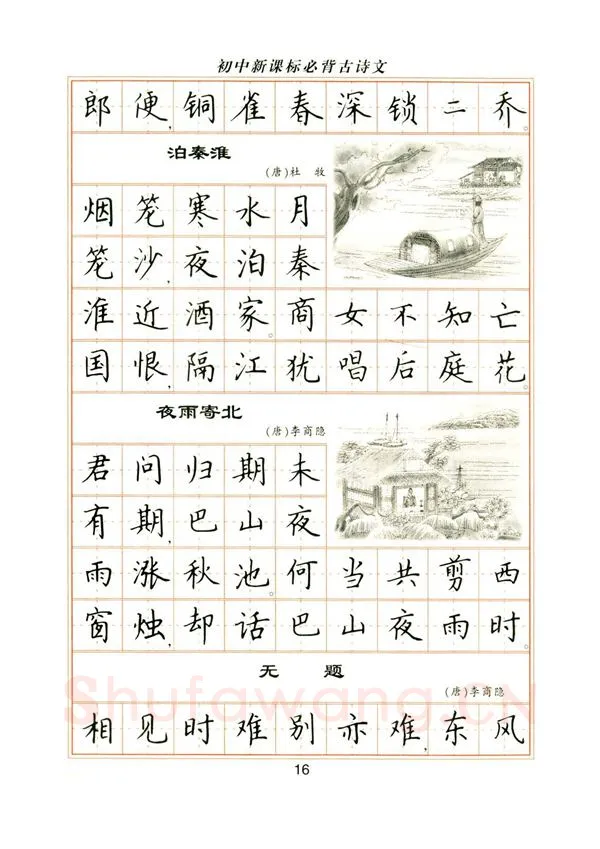 初中新课标必背古诗文
郎便,铜雀春深锁二乔。
泊秦淮
(唐)杜 牧
烟笼寒水月
笼沙,夜泊秦
淮近酒家。商女不知亡
国恨,隔江犹唱后庭花。
夜雨寄北
(唐)李商隐
君问归期未
有期,巴山夜
雨涨秋池。何当共剪西
窗烛,却话巴山夜雨时。
无 题
(唐)李商隐
Shufawang.CN
相见时难别亦难,东风
16